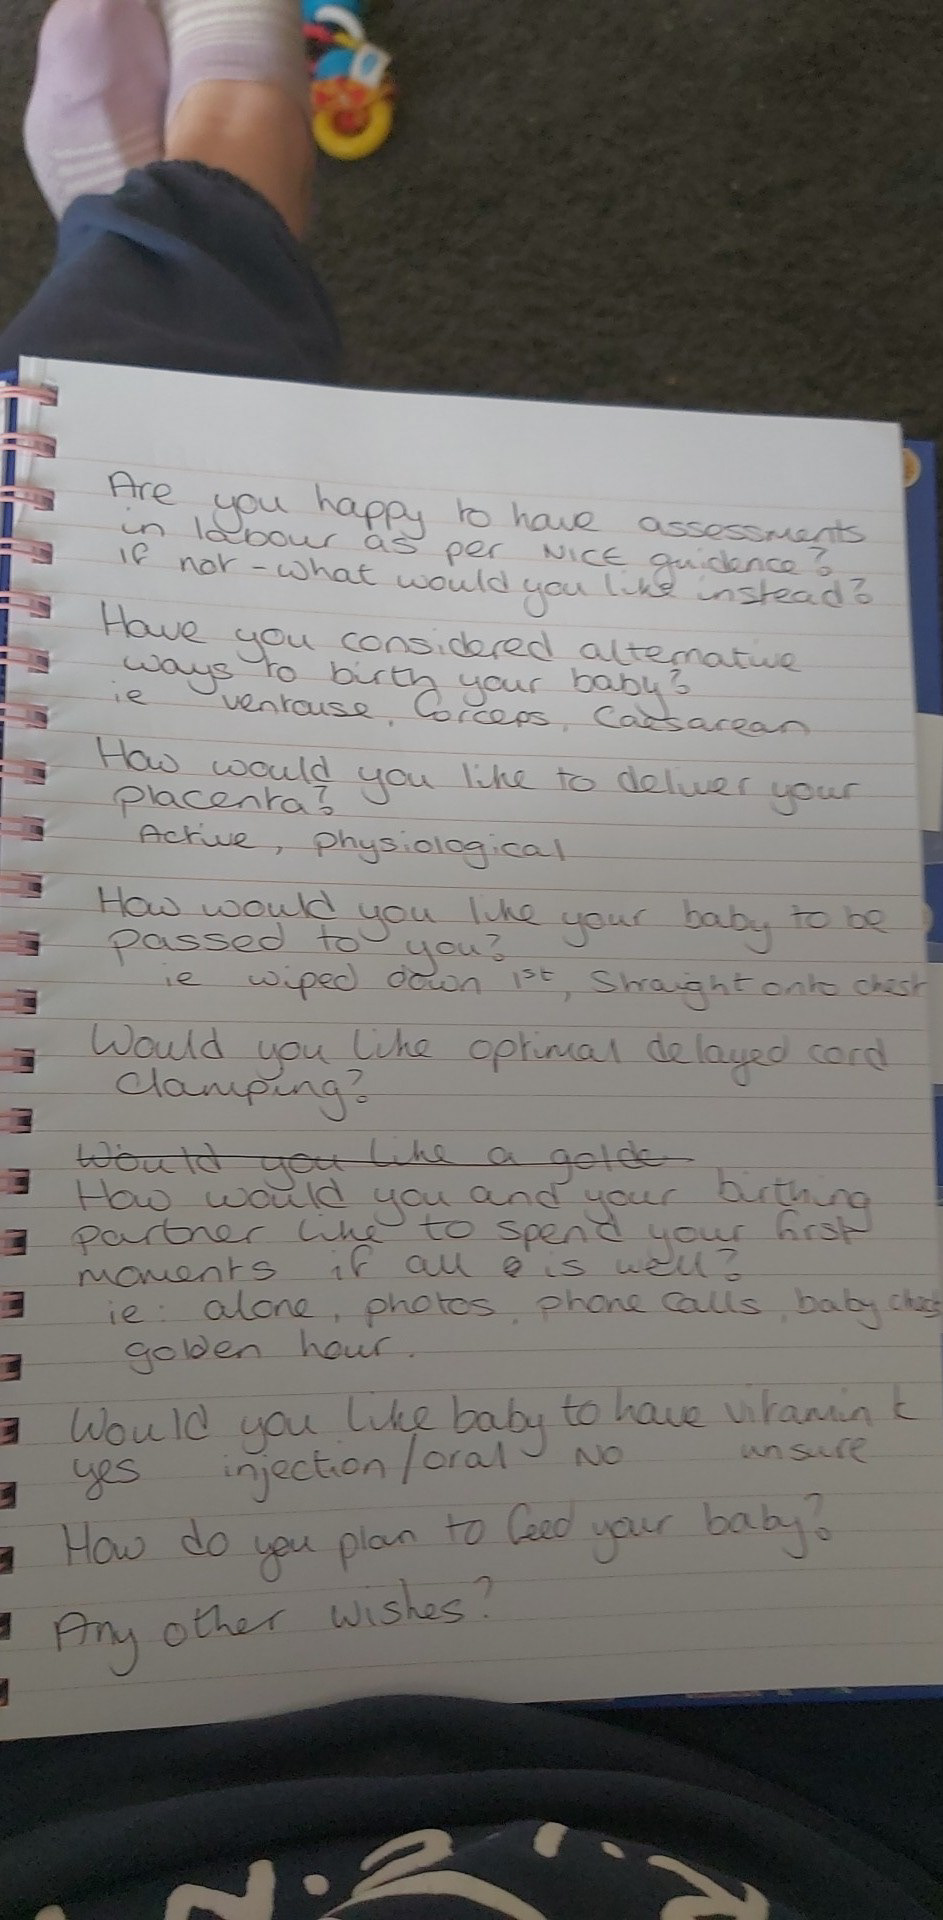 Are you happy to have assessments
in labour as per NICE guidence?
If not - what would you like instead?
Have you considered alternative
ways to birth your baby?
ie ventouse, forceps, Caesarean
How would you like to deliver your
placenta?
Active, physiological
How would you like your baby to be
passed to you?
ie wiped down 1st, Straight onto chest
Would you like optimal delayed cord
clamping?
Would you like a golde
How would you and your birthing
partner like to spend your first
moments if all is well?
ie: alone, photos, phone calls, baby
golden hour.
Would you like baby to have vitamin k
yes injection/oral No unsure
How do you plan to feed your baby?
Any other wishes?